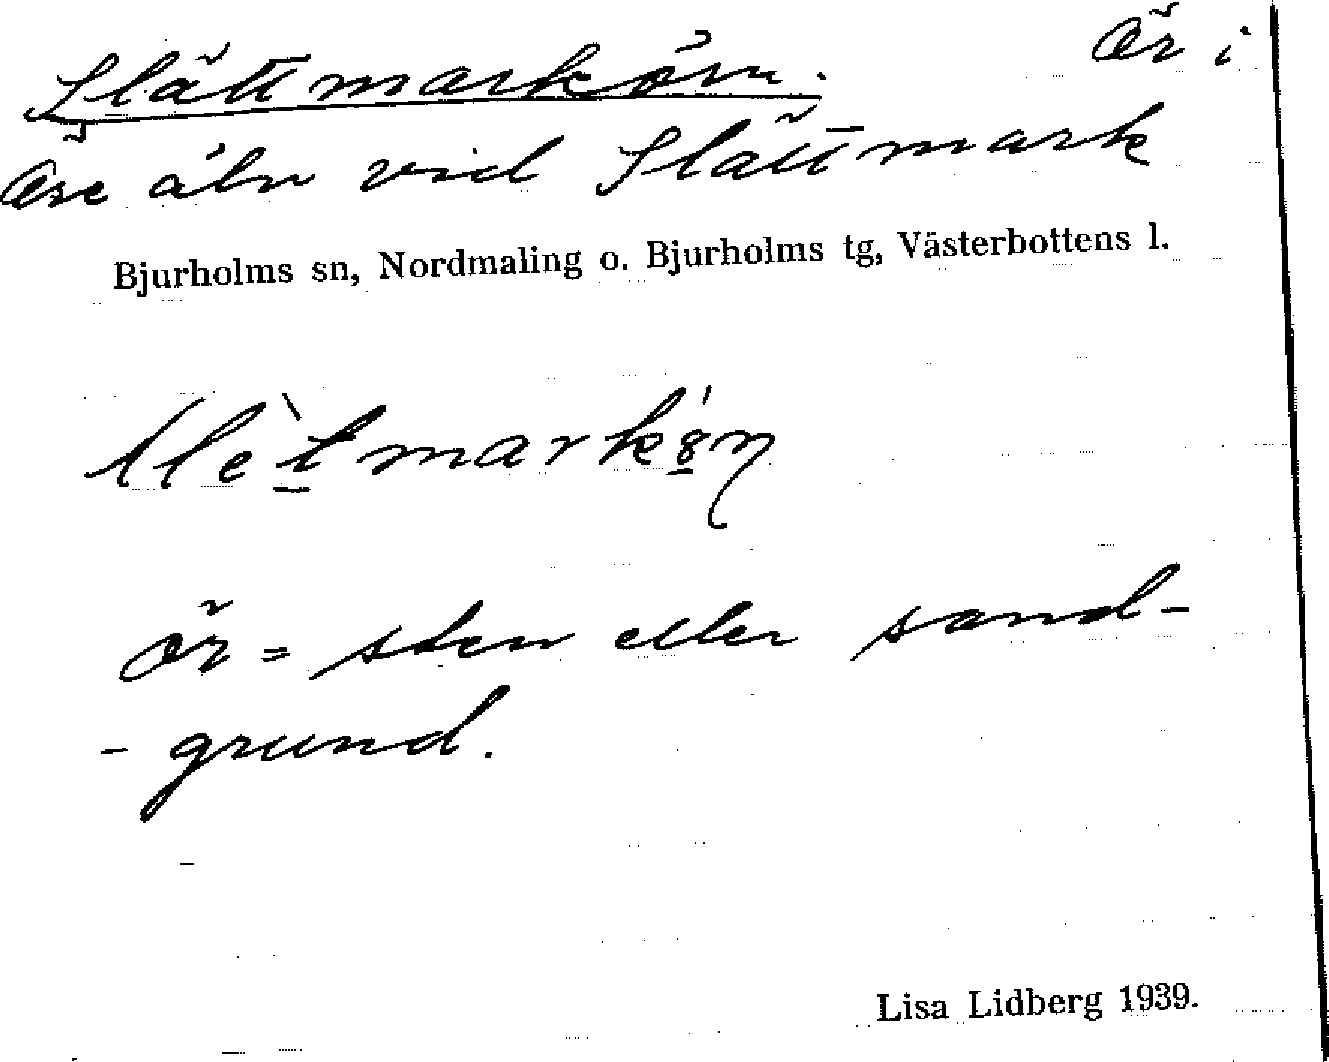 Slättmarkörn. Ör i
Öre älv vid Slättmark
Bjurholms sn, Nordmaling o. Bjurholms tg, Västerbottens l.
ör = sten eller sand-
- grund.
Lisa Lidberg 1939.